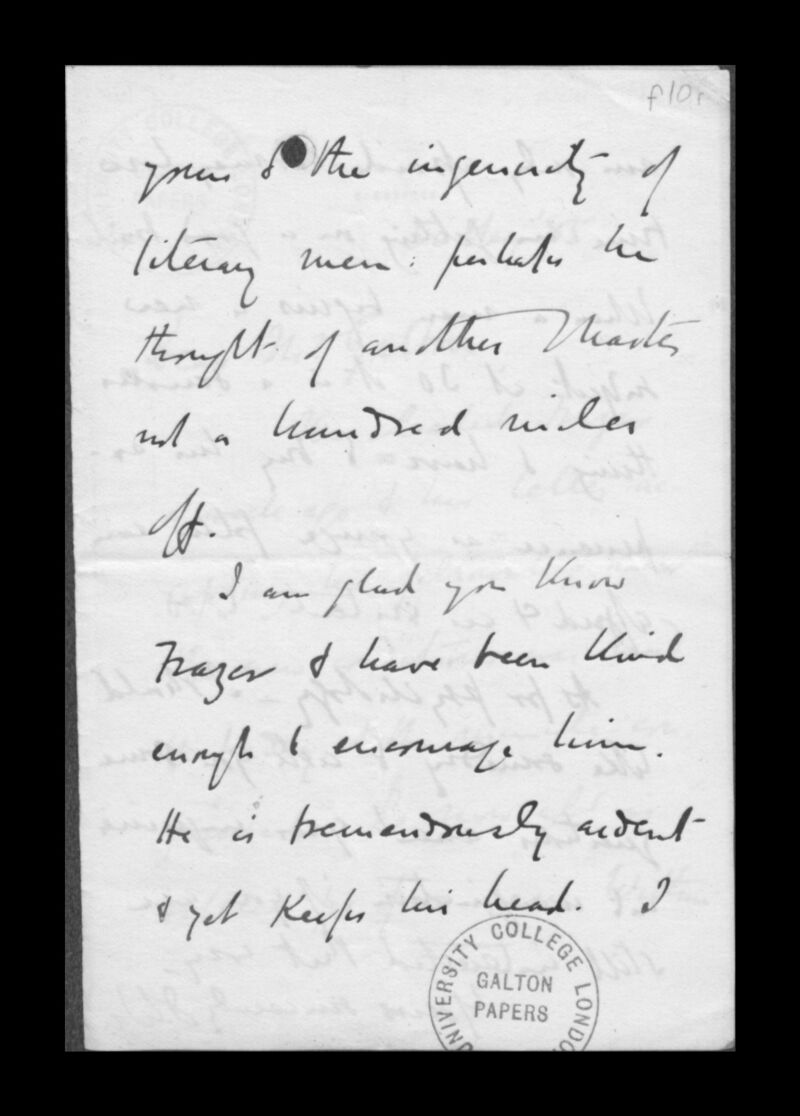 f10r
yours & the ingenuity of
literary men: perhaps he
thought of another Master
not a hundred miles
off.
I am glad you know
Frazer & have been kind
enough to encourage him.
He is tremendously ardent
& yet keeps his head. I
UNIVERSITY COLLEGE LONDON
GALTON
PAPERS